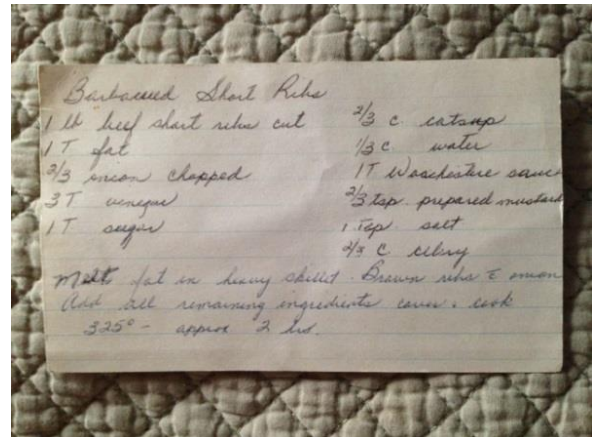 Barbacued Short Ribs
1 lb beef short ribs cut
1 T fat
2/3 onion chopped
3 T vinegar
1 T sugar
2/3 c. catsup
1/3 c. water
1T Woschestire sauce
2/3 tsp. prepared mustard
1 tsp. salt
2/3 c celery
Melt fat in heavy skillet. Brown ribs & onion
Add all remaining ingredients cover & cook
325° - approx 2 hrs.